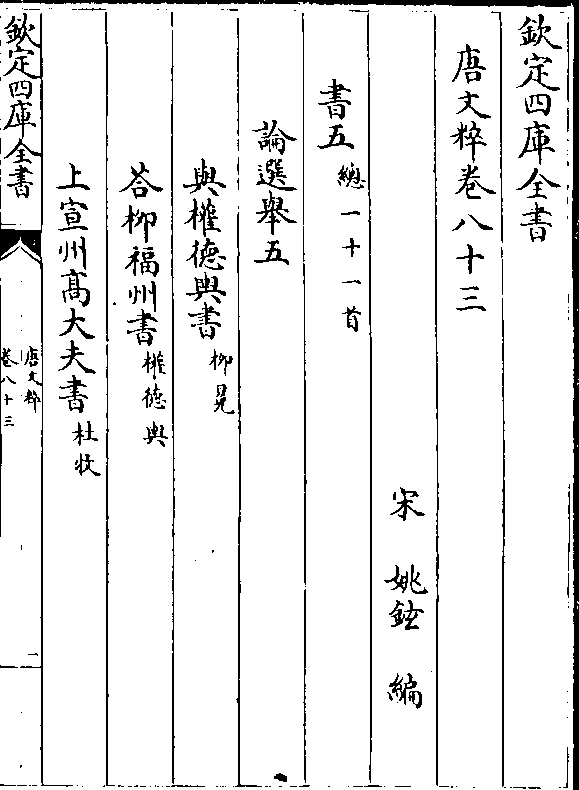 欽定四庫全書
唐文粹卷八十三
宋 姚鉉 編
書五總一十一首
論選舉五
與權德輿書柳冕
荅柳福州書權德輿
上宣州髙大夫書杜牧
欽定四庫全書
唐文粹
卷八十三
一